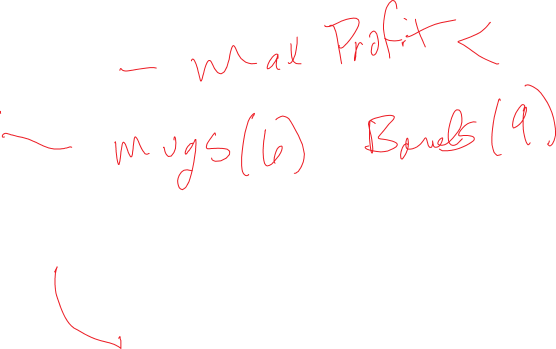 - Max Profit <
mugs(6) Bowls(9)